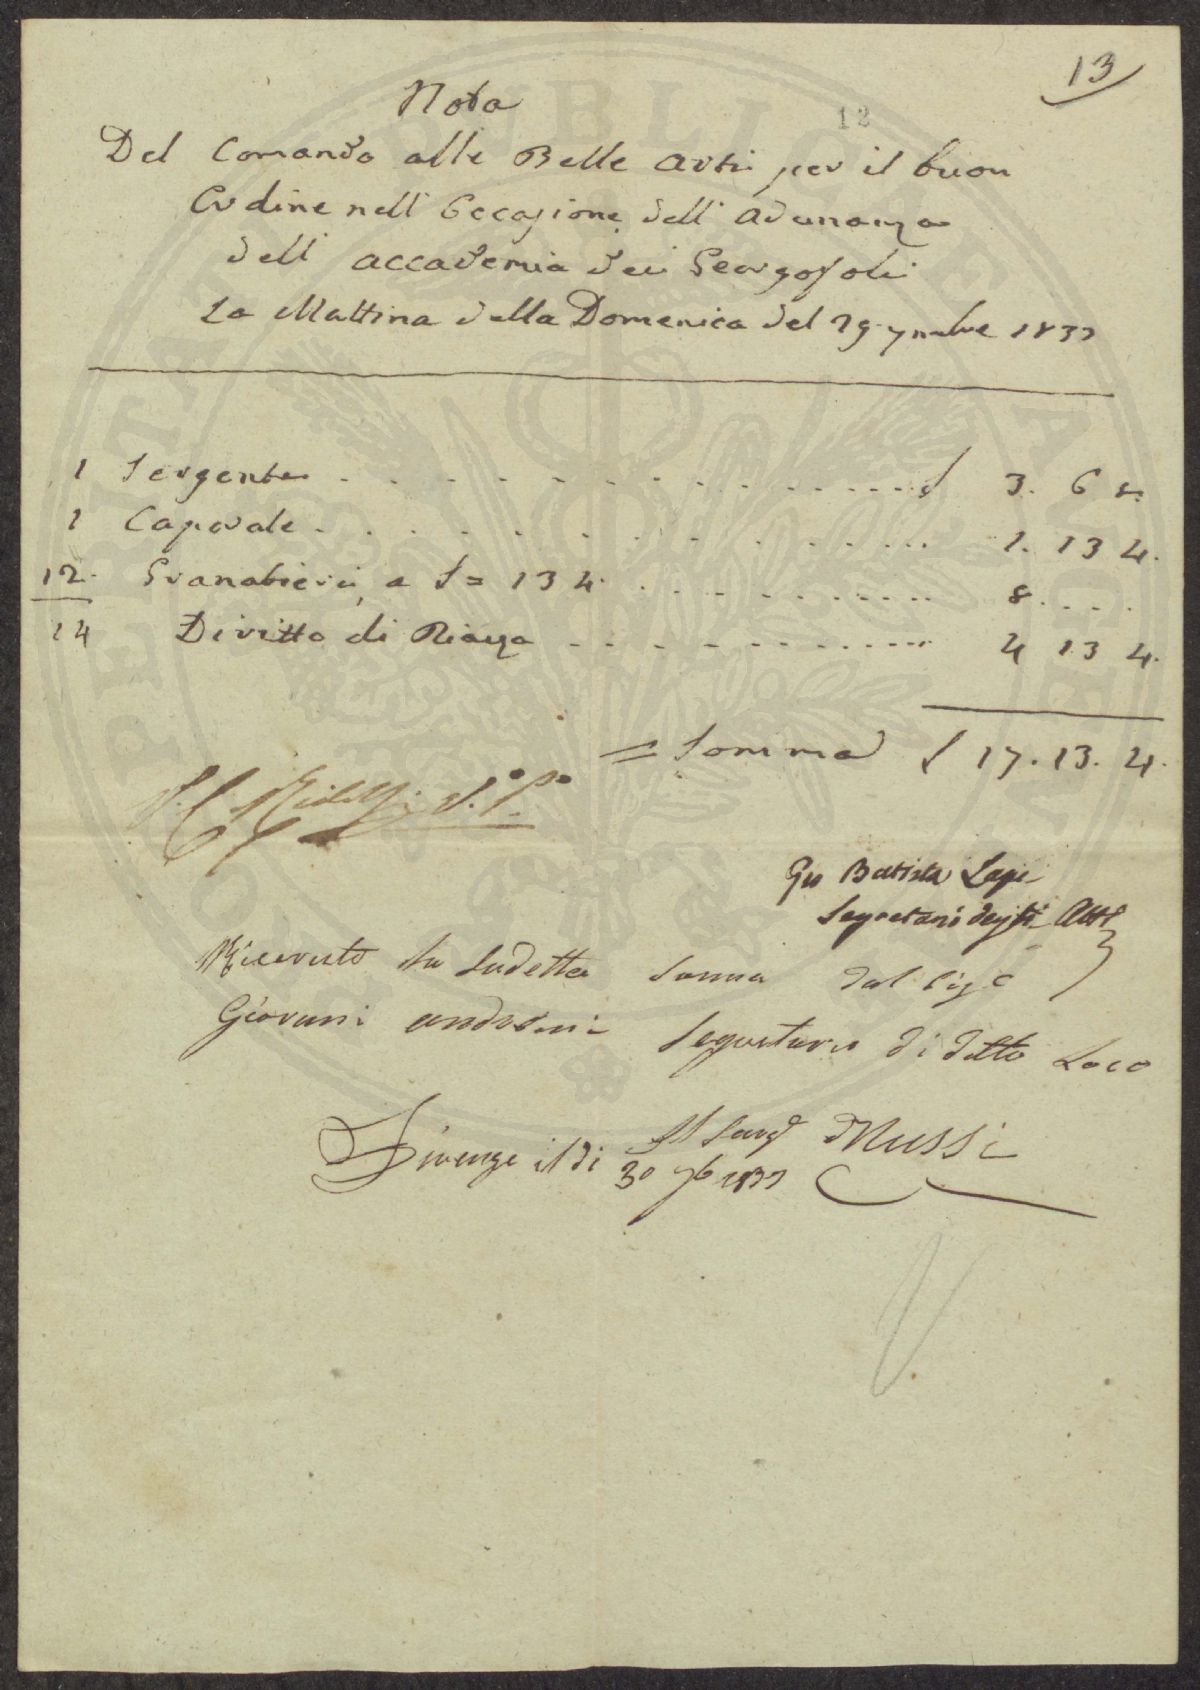 13
12
Nota
Del Comando alle Belle Arti per il buon
Ordine nell Occasione dell Adunanza
dell accademia dei Georgofoli
La Mattina della Domenica del 29. 7mbre 1833
1 Sergente £ 3. 6 8.
1 Caporale 1. 13 4.
12. Granatieri a £ = 13 4. 8
14 Diritto di Piazza 4 13 4.
= Somma £ 17. 13. 4.
Ridolfi
Gio Batista Lapi
Segretario degli Atti
Ricevuto la sudetta Somma dal Sige
Giovani Segretario di detto Loco
Il Sarge Mussi
Firenze il di 30 7b 1833